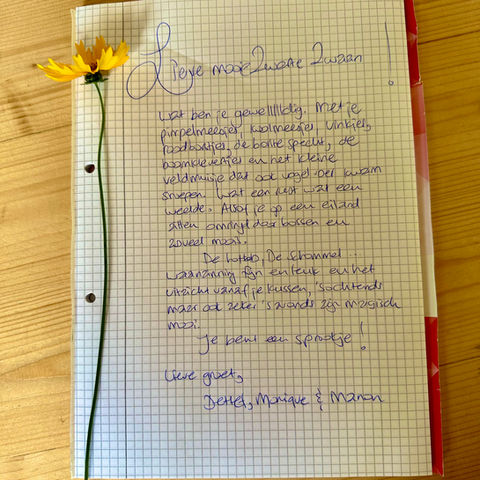 Lieve mooie Zwarte Zwaan!
Wat ben je gewellllldig. Met je
pimpelmeesjes, koolmeesjes, vinkjes,
roodborstjes, de bonte specht, de
boomklevertjes en het kleine
veldmuisje dat ook vogel-voer kwam
snoepen. Wat een rust wat een
weelde. Alsof je op een eiland
zitten omringt door bossen en
zoveel moois.
De hottub, De schommel...
waanzinnig fijn en leuk en het
uitzicht vanaf je kussen, 'sochtends
maar ook zeker 's avonds zijn magisch
mooi.
Je bent een sprookje!
Lieve groet,
Monique & Manon